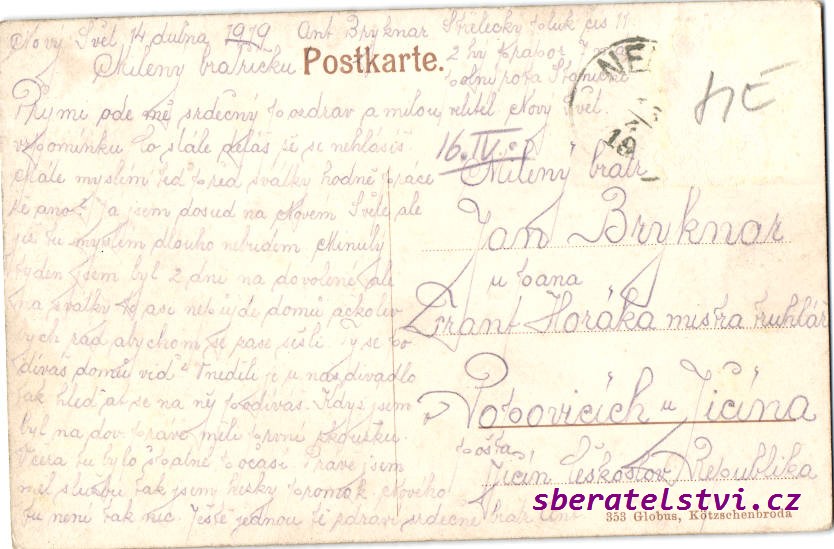 Nový Svět 14 dubna 1919 Ant Bryknar Střelecký pluk čis 11
2 hý prapor
polní rota Stanický
velitel Nový Svět.
Postkarte.
Milený bratříčku
Přijmi ode mě srdečný pozdrav a milou
vzpomínku Co stále děláš že se nehlásíš
Stále myslím teď před svátky hodně práce
že ano? Ja jsem dosud na Novém Světe ale
již tu myslím dlouho nebudem Minulý
tyden jsem byl 2 dni na dovolené ale
na svátky to asi nepůjde domů ačkoliv
bych rád abychom se zase sešli. Ty se po
díváš domů viď? V neděli je u nás divadlo
tak hleď at se na ně podíváš. Když jsem
byl na dov. právě měli první zkoušku.
Včera tu bylo špatné počasí. Prave jsem
měl službu tak jsem hezky promok. Nového
tu není tak nic. Ještě jednou tě zdraví srdečně bratr Ant
NE
19
16. IV.
Milený bratr
Jan Bryknar
u pana
Frant Horáka mistra truhlář
v Popovicích u Jičína
pošta
Jičín Českoslov Republika
353 Globus, Kötzschenbroda
sberatelstvi.cz